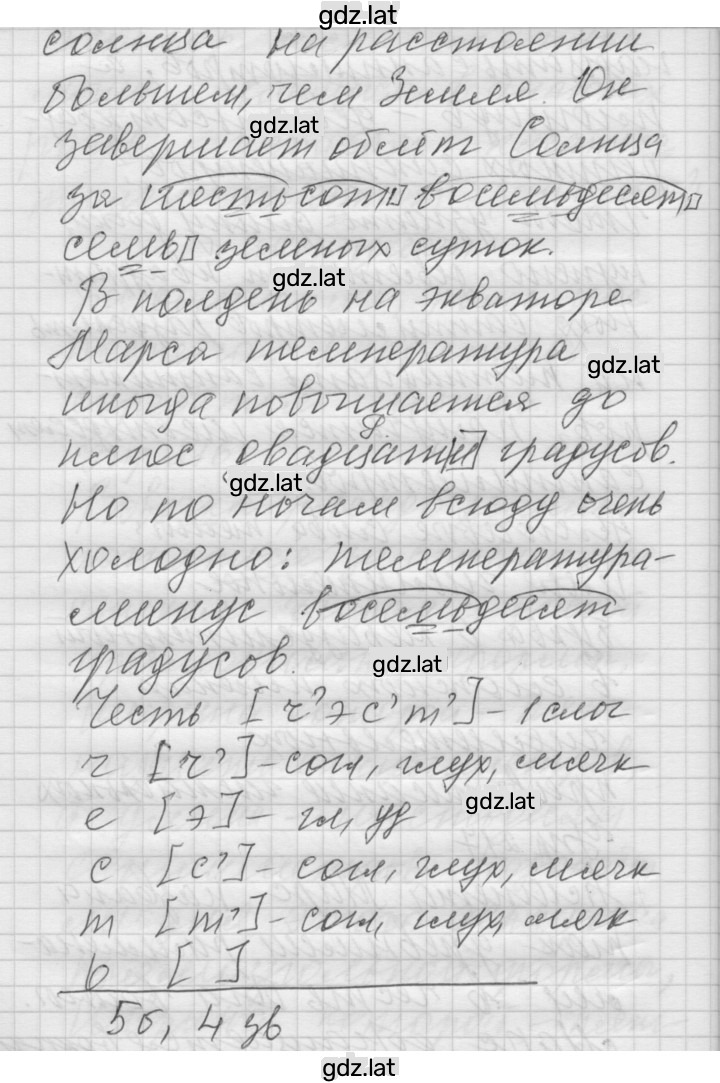 gdz.lat
солнца на расстоянии
большем, чем Земля. Он
gdz.lat
завершает облёт Солнца
за шестьсот восемьдесят
семь земных суток.
gdz.lat
В полдень на экваторе
Марса температура
gdz.lat
иногда повышается до
плюс двадцати градусов.
gdz.lat
Но по ночам всюду очень
холодно: температура-
минус восемьдесят
градусов.
gdz.lat
Честь [ч'эс'т'] - 1 слог
ч [ч'] - согл, глух, мягк
е [э] - гл, уд
gdz.lat
с [с'] - согл, глух, мягк
т [т'] - согл, глух, мягк
ь [ ]
5б, 4 зв
gdz.lat